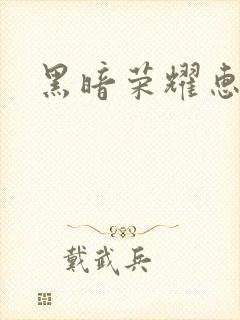 黑暗荣耀惠
戴武兵